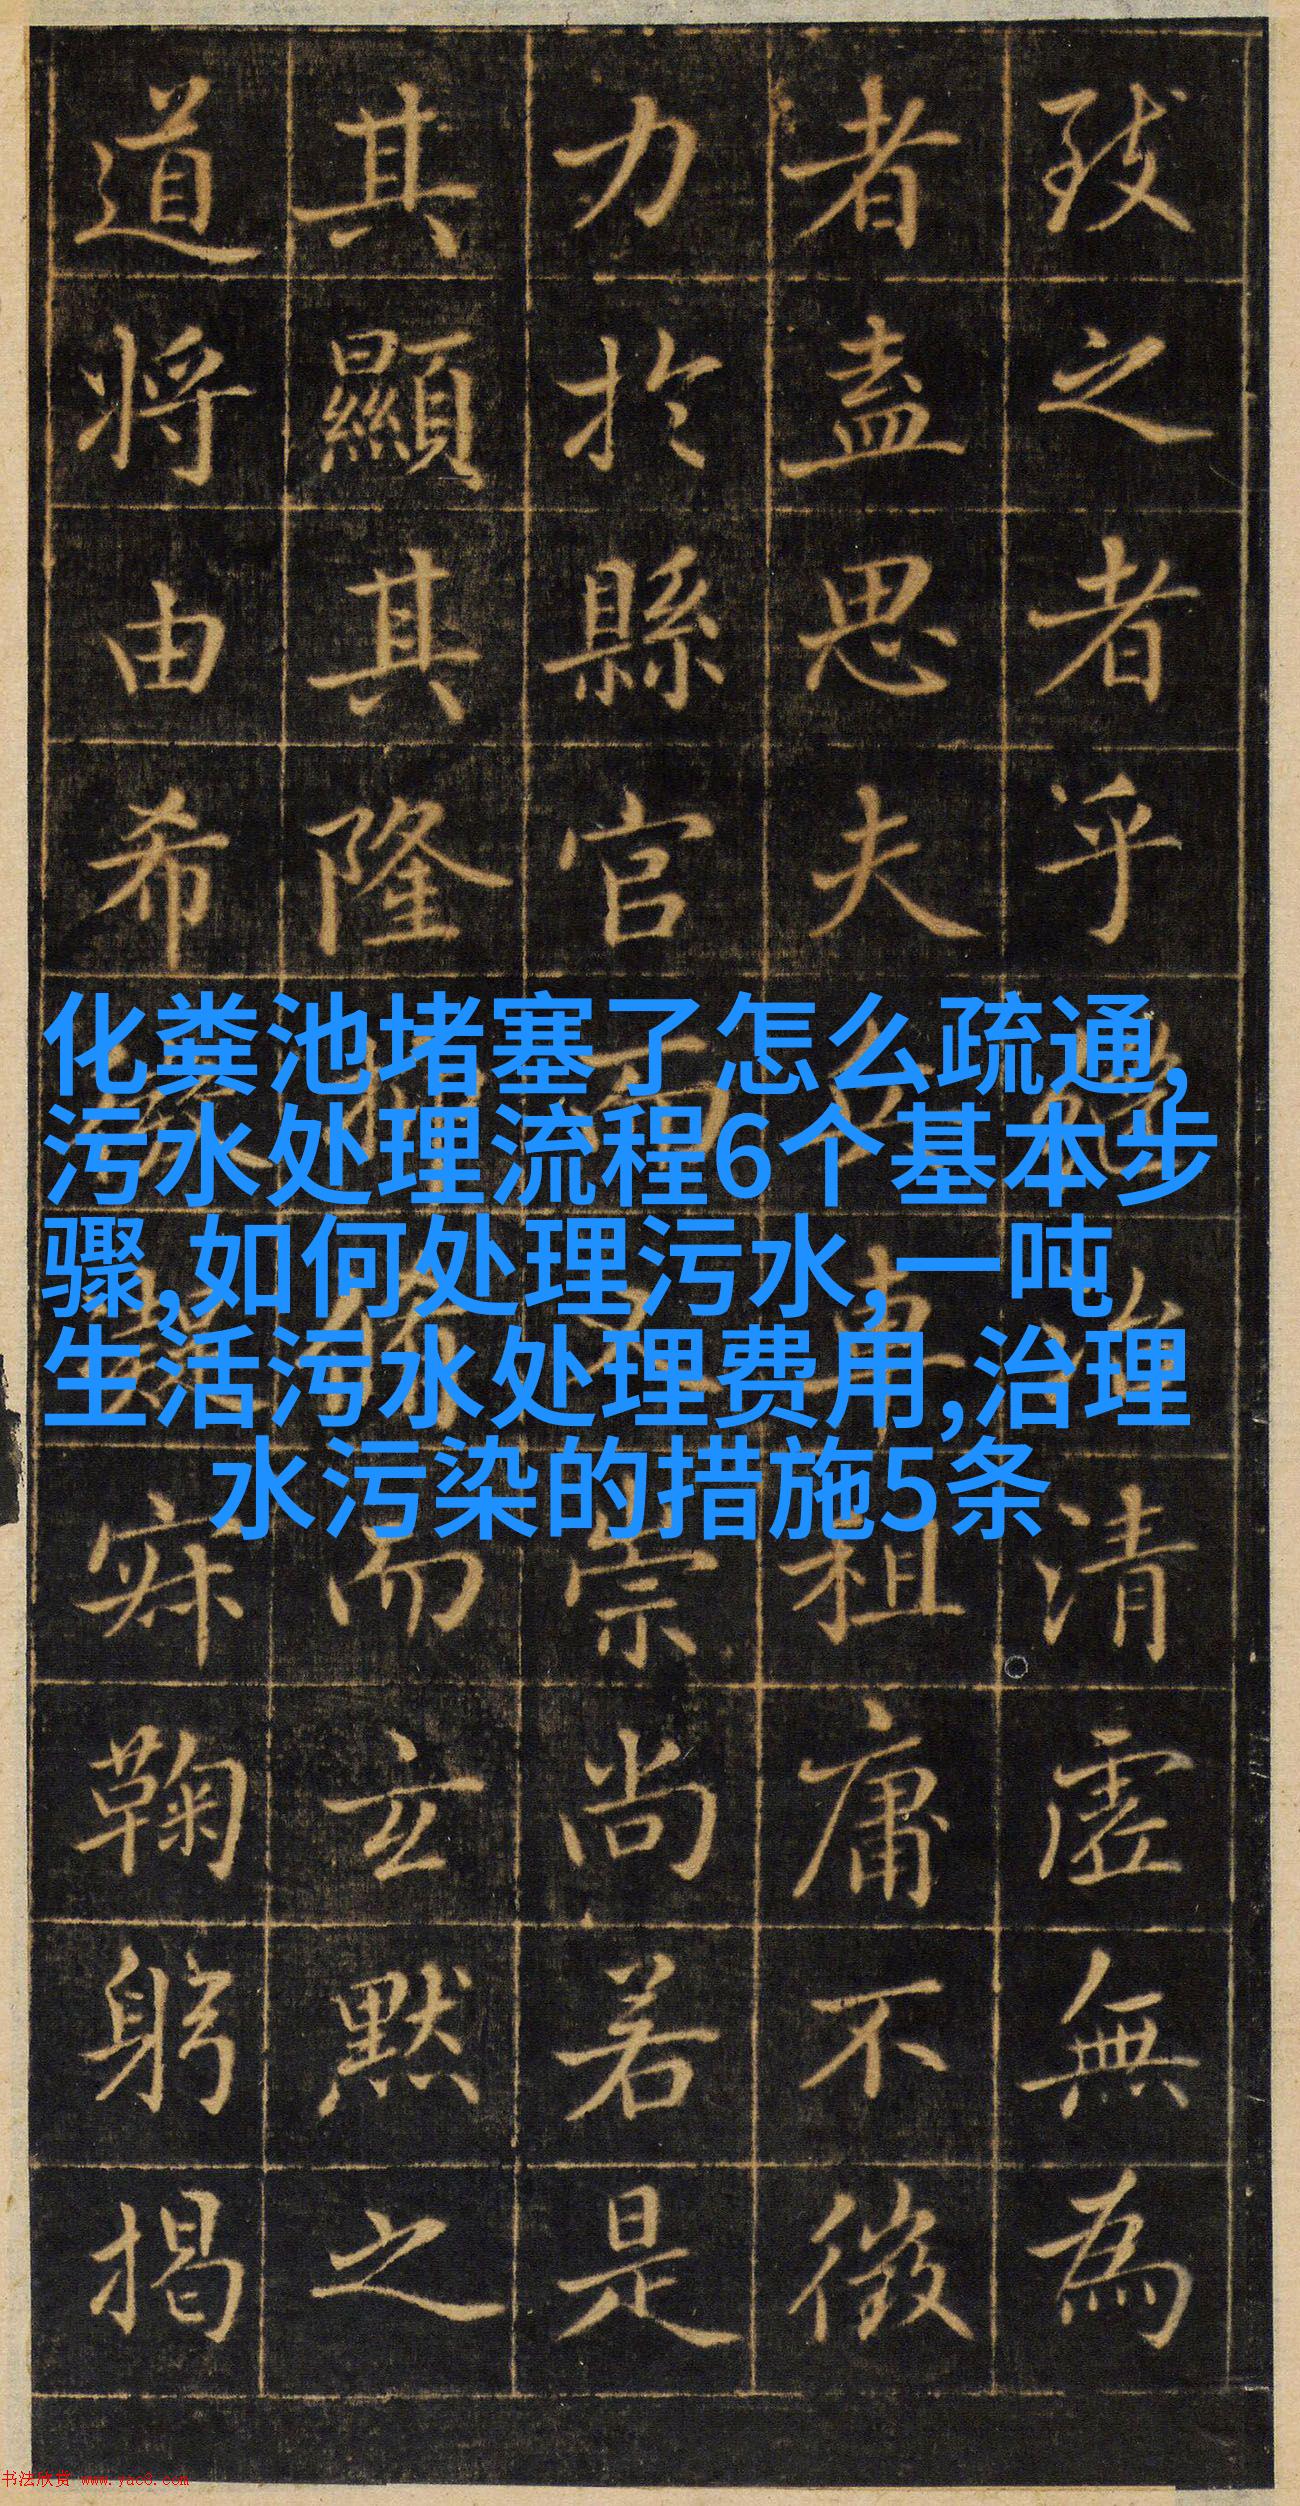 致之者乎
清虛無為
者盖思夫
專
租庸不徵
力於縣官而
崇尚若是
其顯其隆
而玄默之
道将由希
寐鞠躬揭
化粪池堵塞了怎么疏通,
污水处理流程6个基本步
骤,如何处理污水,一吨
生活污水处理费用,治理
水污染的措施5条
书法欣赏 www.yac8.com